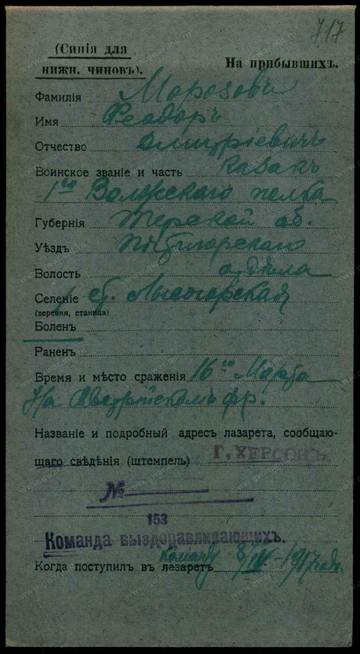 717
(Синія для
нижн. чиновъ).
На прибывшихъ.
Фамилія Морозовъ
Имя Феодоръ
Отчество Дмитріевичъ
Воинское званіе и часть казакъ
1го Волгскаго полка
Губернія Терской об.
Уѣздъ Пятигорскаго
Волость отдѣла
Селеніе ст. Лысогорская
(деревня, станица)
Боленъ
Раненъ
Время и мѣсто сраженія 16го Марта
На Австрійскомъ фр.
Названіе и подробный адресъ лазарета, сообщаю-
щаго свѣдѣнія (штемпель) Г. ХЕРСОНЪ.
№
153
Команда выздоравливающихъ.
Когда поступилъ въ лазаретъ команду 8/IV-1917 года